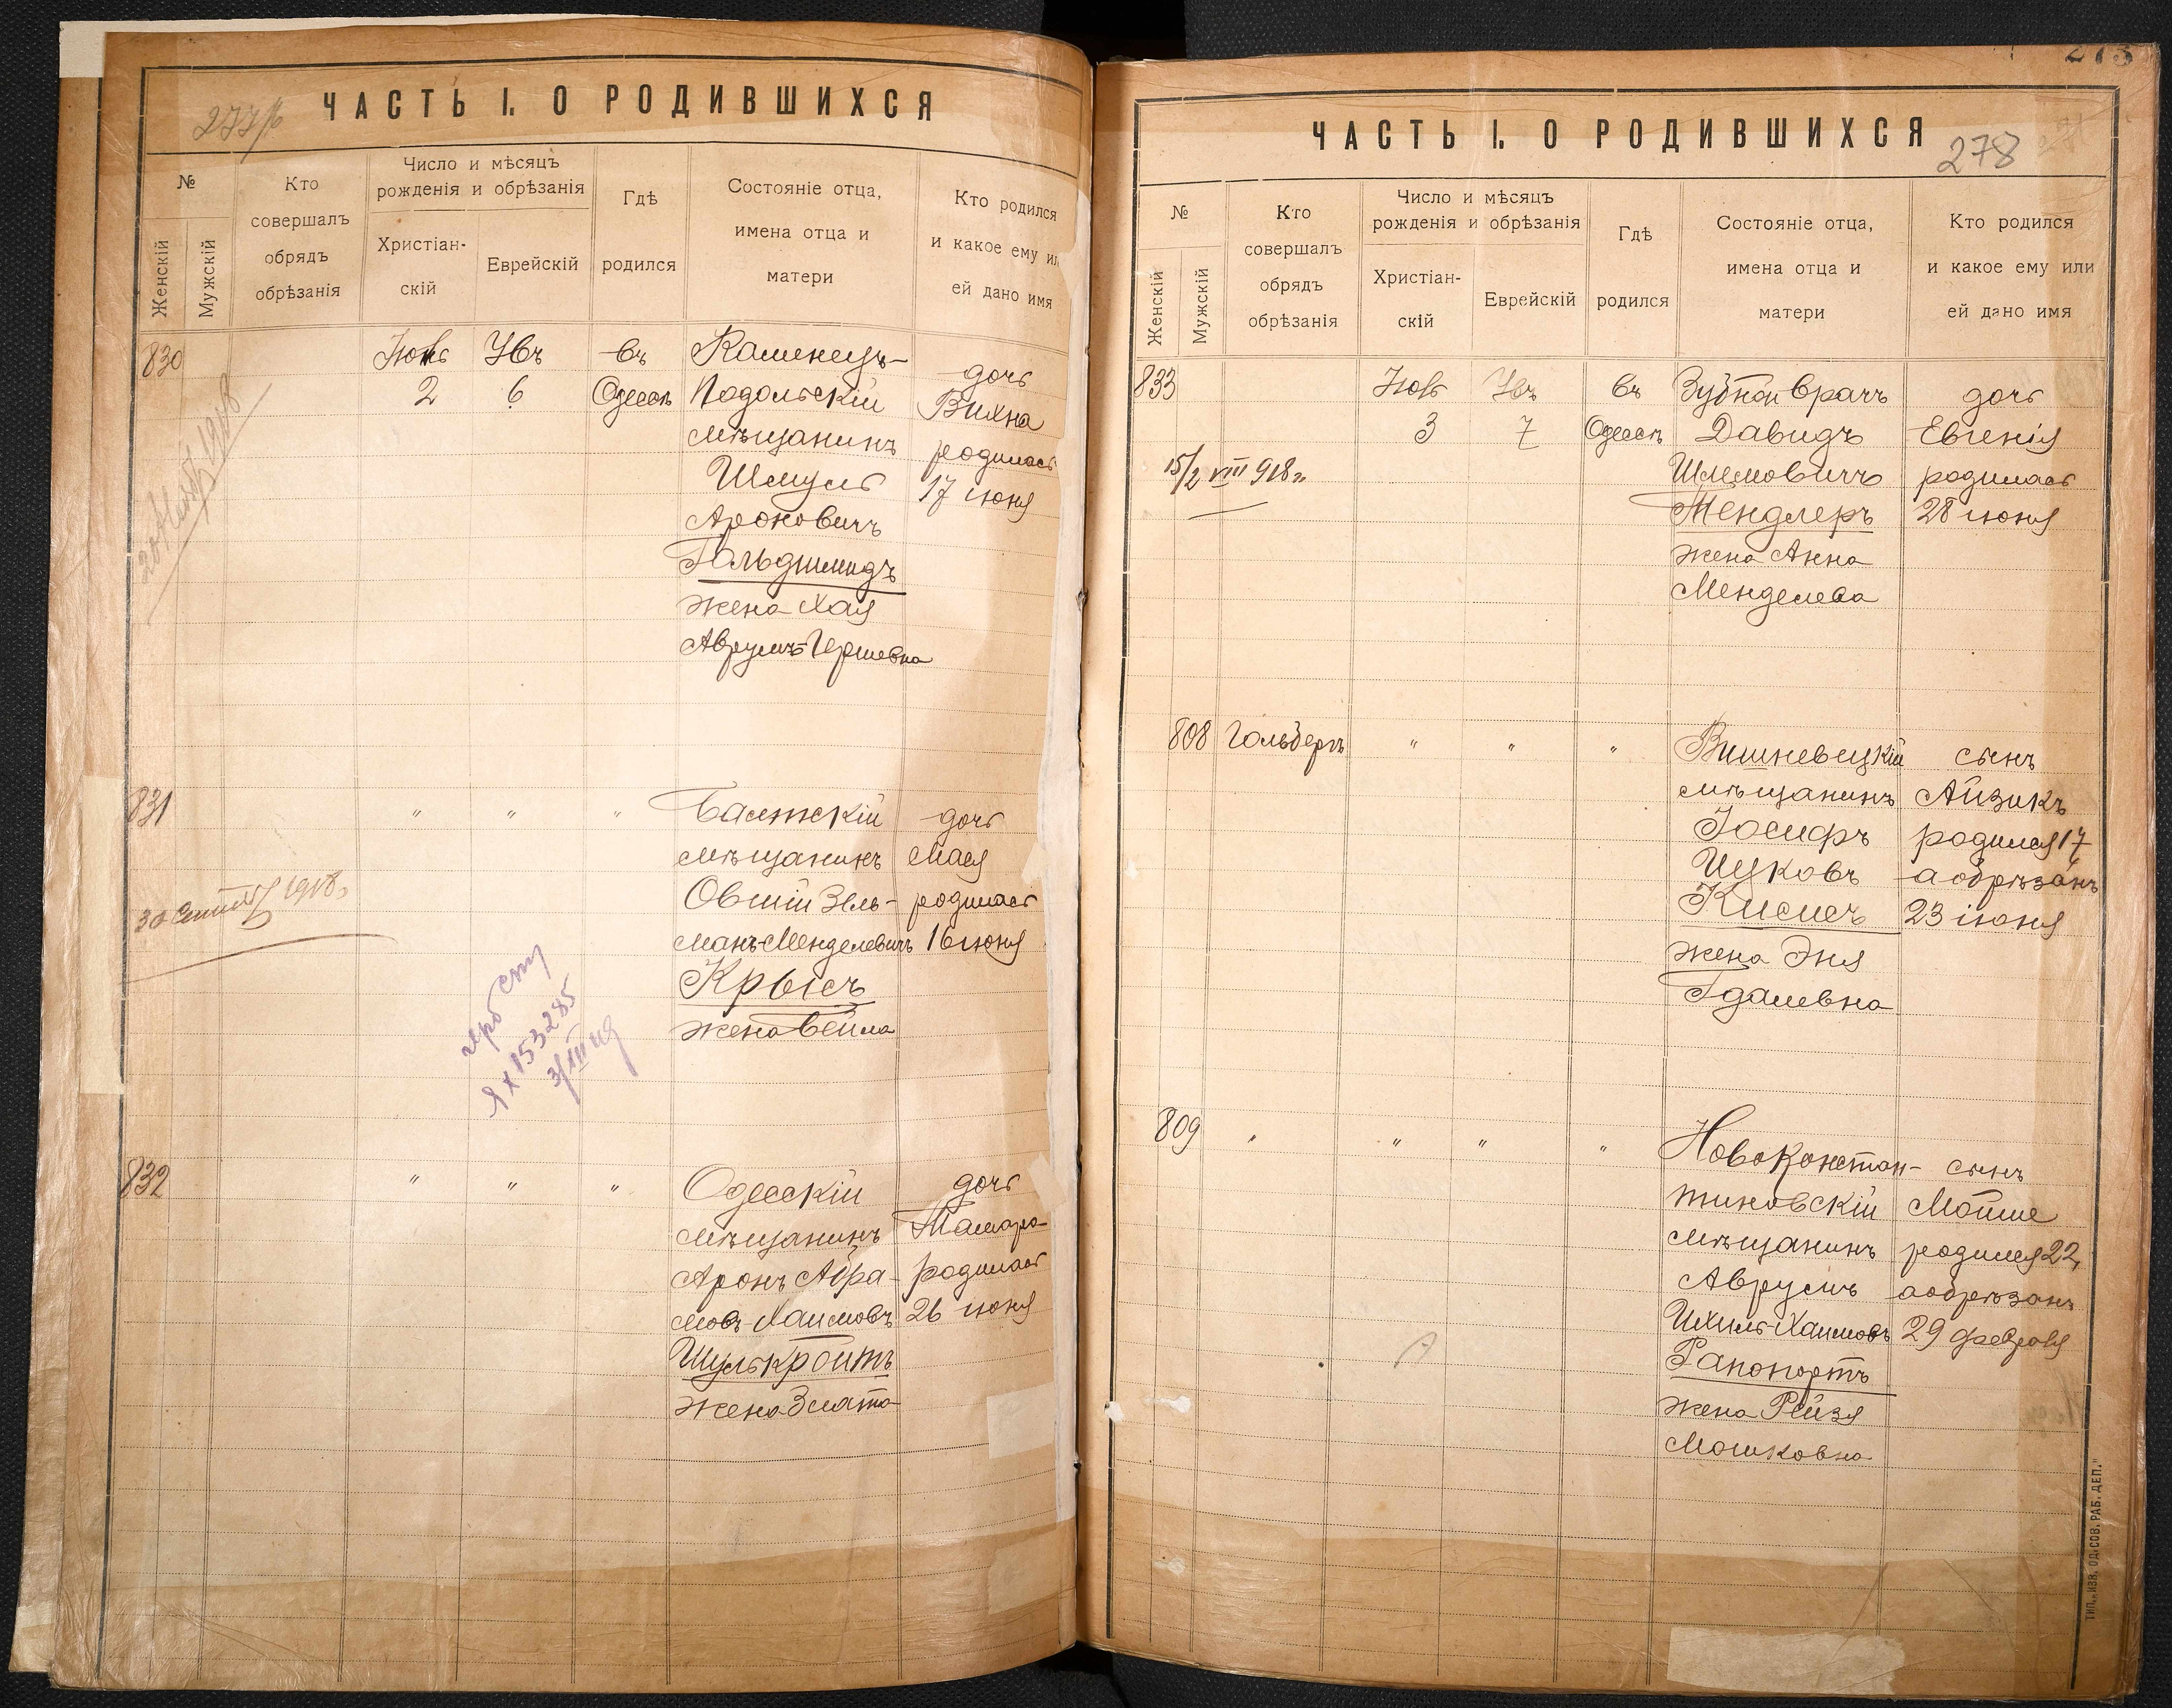 277б
ЧАСТЬ I. О РОДИВШИХСЯ
№
Женскій
Мужскій
Кто
совершалъ
обрядъ
обрѣзанія
Число и мѣсяцъ
рожденія и обрѣзанія
Христіан-
скій
Еврейскій
Гдѣ
родился
Состояніе отца,
имена отца и
матери
Кто родился
и какое ему ил
ей дано имя
830
2
6
въ
Одессѣ
Каменецъ-
Подольскій
мѣщанинъ
Шмуль
Ароновичъ
Гольдшмидъ
жена Хая
Аврумъ-Гершевна
дочь
Вихна
родилась
17 іюня
1918
831
"
"
"
Балтскій
мѣщанинъ
Овшій Зель-
манъ-Менделевичъ
Крысъ
жена Бейла
дочь
Мася
родилась
16 іюня
30 1918
153285
832
"
"
"
Одесскій
мѣщанинъ
Аронъ Абра-
мовъ-Хаимовъ
Шулькройтъ
жена Злата
дочь
Тамара
родилась
26 іюня
278
ЧАСТЬ I. О РОДИВШИХСЯ
№
Женскій
Мужскій
Кто
совершалъ
обрядъ
обрѣзанія
Число и мѣсяцъ
рожденія и обрѣзанія
Христіан-
скій
Еврейскій
Гдѣ
родился
Состояніе отца,
имена отца и
матери
Кто родился
и какое ему или
ей дано имя
833
3
7
въ
Одессѣ
Зубной врачъ
Давидъ
Шлемовичъ
Тендлеръ
жена Анна
Менделева
дочь
Евгенія
родилась
28 іюня
15/2 VIII 918 г.
808
Гольбергъ
"
"
"
Вишневецкій
мѣщанинъ
Іосифъ
Ицковъ
Кисисъ
жена Эня
Гдалевна
сынъ
Айзикъ
родился 17
а обрѣзанъ
23 іюня
809
"
"
"
"
Новоконстан-
тиновскій
мѣщанинъ
Аврумъ
Ихиль-Хаимовъ
Рапопортъ
жена Рейзя
Мошковна
сынъ
Мойше
родился 22,
а обрѣзанъ
29 февраля
ТИП. „ИЗВ. ОД. СОВ. РАБ. ДЕП."